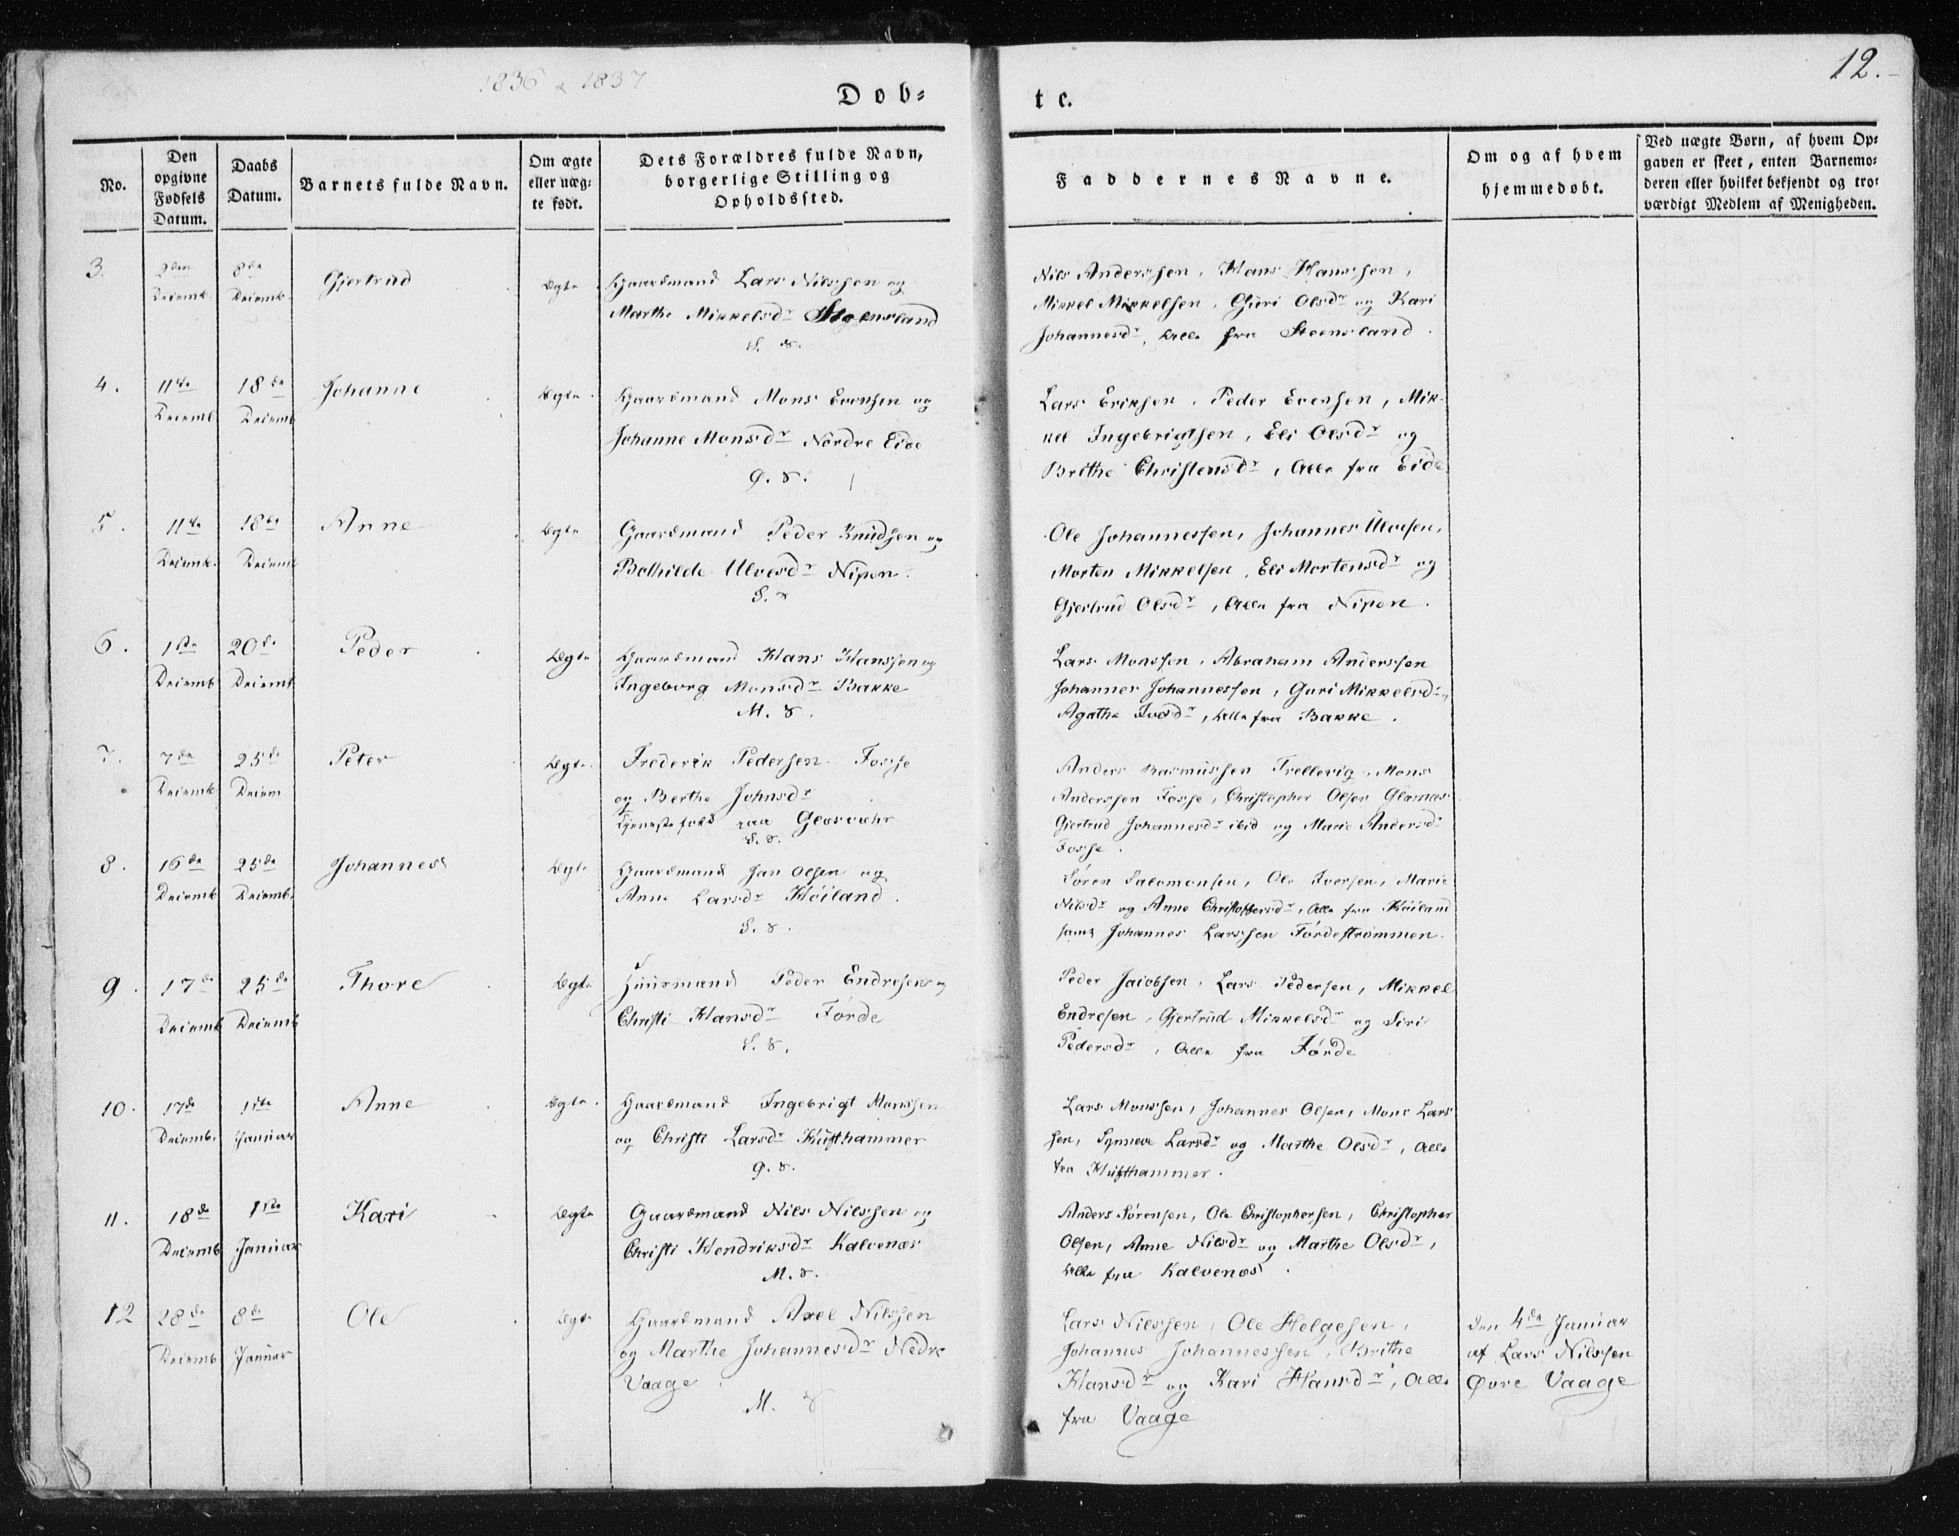 1836 & 1837
12.
Døb=
te.
No.
Den opgivne Fødsels Datum.
Daabs Datum.
Barnets fulde Navn.
Om ægte eller uæg- te født.
Dets Forældres fulde Navn, borgerlige Stilling og Opholdssted.
Faddernes Navne.
Om og af hvem hjemmedøbt.
Ved uægte Børn, af hvem Op- gaven er skeet, enten Barnemo- deren eller hvilket bekjendt og tro- værdigt Medlem af Menigheden.
3.
2den Decemb.
8de Decemb.
Gjertrud
Ægte
Gaardmand Lars Nilssen og
Marthe Mikkelsdr Steensland
S. S.
Nils Anderssen, Hans Hanssen,
Mikkel Mikkelsen, Guri Olsdr og Kari
Johannesdr, Alle fra Steensland.
4.
11te Decemb
18de Decemb
Johanne
Ægte.
Gaardmand Mons Evensen og
Johanne Monsdr Nordre Eide
G. S.
Lars Eriksen, Peder Evensen, Mik-
kel Ingebrigtsen, Eli Olsdr og
Brithe Christensdr, Alle fra Eide
5.
11te Decemb.
18de Decemb
Anne
Ægte
Gaardmand Peder Knudsen og
Bothilde Ulvesdr Nipen.
S. S.
Ole Johannessen, Johannes Ulvesen,
Morten Mikkelsen, Eli Mortensdr og
Gjertrud Olsdr, Alle fra Nipen.
6.
1ste Decemb
20de Decemb
Peder
Ægte
Gaardmand Hans Hanssen og
Ingeborg Monsdr Bakke
M. S.
Lars Monssen, Abraham Anderssen
Johannes Johannessen, Guri Mikkelsdr,
Agathe Ivesdr, Alle fra Bakke.
7.
7de Decemb
25de Decem
Peter
Ægte.
Frederik Pedersen Fosse
og Berthe Johnsdr
Tjenestefolk paa
S. S.
Anders Rasmussen Trellevig, Mons
Anderssen Fosse, Christopher Olsen
Gjertrud Johannesdr ibid og Marie Andersdr
Fosse.
8.
16de Decemb
25de Decemb.
Johannes
Ægte
Gaardmand Jan Olsen og
Anne Larsdr Høiland.
S. S.
Søren Salomonsen, Ole Iversen, Marie
Nilsdr og Anne Christophersdr, Alle fra Høiland
samt Johannes Larssen Førdestrømmen.
9.
17de Decemb
25de Decemb
Thore
Ægte
Huusmand Peder Endresen og
Christi Hansdr Førde
S. S.
Peder Jacobsen, Lars Pedersen, Mikkel
Endresen, Gjertrud Mikkelsdr og Siri
Pedersdr, Alle fra Førde
10.
17de Decemb.
1ste Januar
Anne
Ægte.
Gaardmand Ingebrigt Monssen
og Christi Larsdr Hufthammer
G. S.
Lars Monssen, Johannes Olsen, Mons Lars
sen, Synneve Larsdr og Marthe Olsdr, Alle
fra Hufthammer.
11.
18de Decemb
1ste Januar
Kari
Ægte
Gaardmand Nils Nilssen og
Christi Hendriksdr Kalvenæs
M. S.
Anders Sørensen, Ole Christophersen, Christopher
Olsen, Anne Nilsdr og Marthe Olsdr,
Alle fra Kalvenæs.
12
28de Decemb
8de Januar
Ole
Ægte
Gaardmand Axel Nilssen
og Marthe Johannesdr Nedre
Vaage.
M. S
Lars Nilssen, Ole Helgesen,
Johannes Johannessen, Brithe
Hansdr og Kari Hansdr, Alle
fra Vaage
Den 4de Januar
af Lars Nilssen
Øvre Vaage